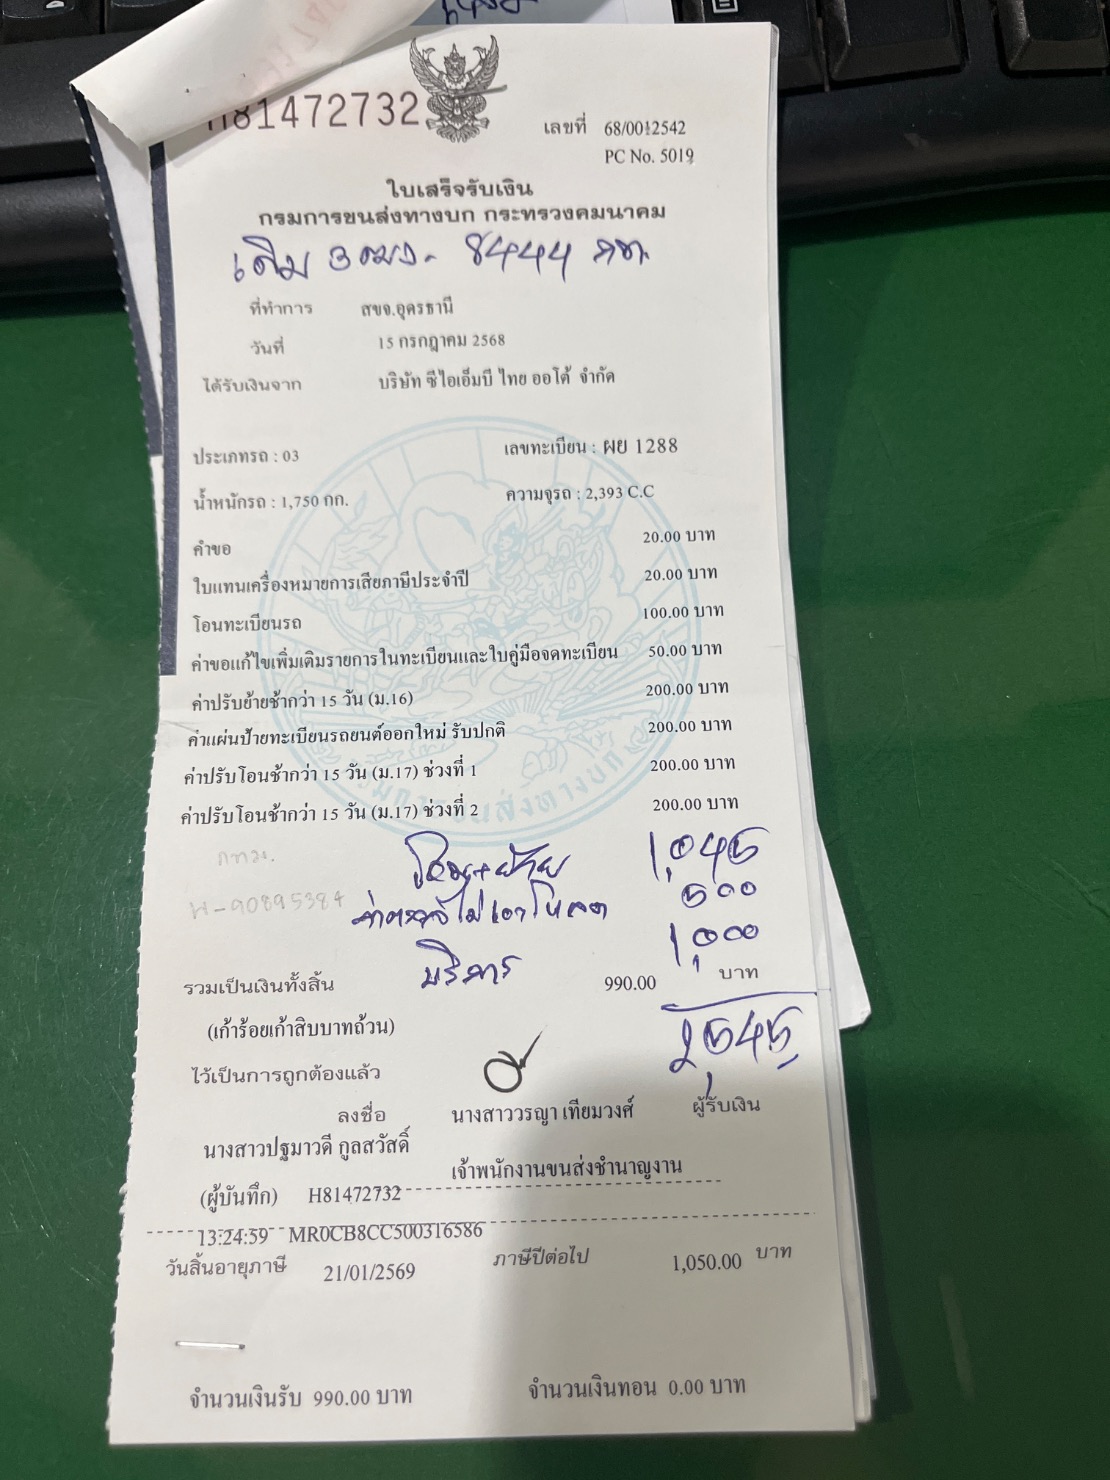 H81472732
เลขที่ 68/0012542
PC No. 5019
ใบเสร็จรับเงิน
กรมการขนส่งทางบก กระทรวงคมนาคม
เดิม 3ฒง - 8444 กท.
ที่ทำการ สขจ.อุดรธานี
วันที่ 15 กรกฎาคม 2568
ได้รับเงินจาก บริษัท ซีไอเอ็มบี ไทย ออโต้ จำกัด
ประเภทรถ : 03 เลขทะเบียน : ผย 1288
น้ำหนักรถ : 1,750 กก. ความจุรถ : 2,393 C.C
คำขอ 20.00 บาท
ใบแทนเครื่องหมายการเสียภาษีประจำปี 20.00 บาท
โอนทะเบียนรถ 100.00 บาท
ค่าขอแก้ไขเพิ่มเติมรายการในทะเบียนและใบคู่มือจดทะเบียน 50.00 บาท
ค่าปรับย้ายช้ากว่า 15 วัน (ม.16) 200.00 บาท
ค่าแผ่นป้ายทะเบียนรถยนต์ออกใหม่ รับปกติ 200.00 บาท
ค่าปรับโอนช้ากว่า 15 วัน (ม.17) ช่วงที่ 1 200.00 บาท
ค่าปรับโอนช้ากว่า 15 วัน (ม.17) ช่วงที่ 2 200.00 บาท
กรมการขนส่งทางบก
กทม. โอน+ย้าย 1,045
ห-90895384 ค่าตรวจไม่เอาโหลด 500
บริการ 1,000
รวมเป็นเงินทั้งสิ้น 990.00 บาท
(เก้าร้อยเก้าสิบบาทถ้วน) 2,545
ไว้เป็นการถูกต้องแล้ว
ลงชื่อ นางสาววรญา เทียมวงศ์ ผู้รับเงิน
นางสาวปฐมาวดี กูลสวัสดิ์
เจ้าพนักงานขนส่งชำนาญงาน
(ผู้บันทึก) H81472732
13:24:59 MR0CB8CC500316586
วันสิ้นอายุภาษี 21/01/2569 ภาษีปีต่อไป 1,050.00 บาท
จำนวนเงินรับ 990.00 บาท จำนวนเงินทอน 0.00 บาท